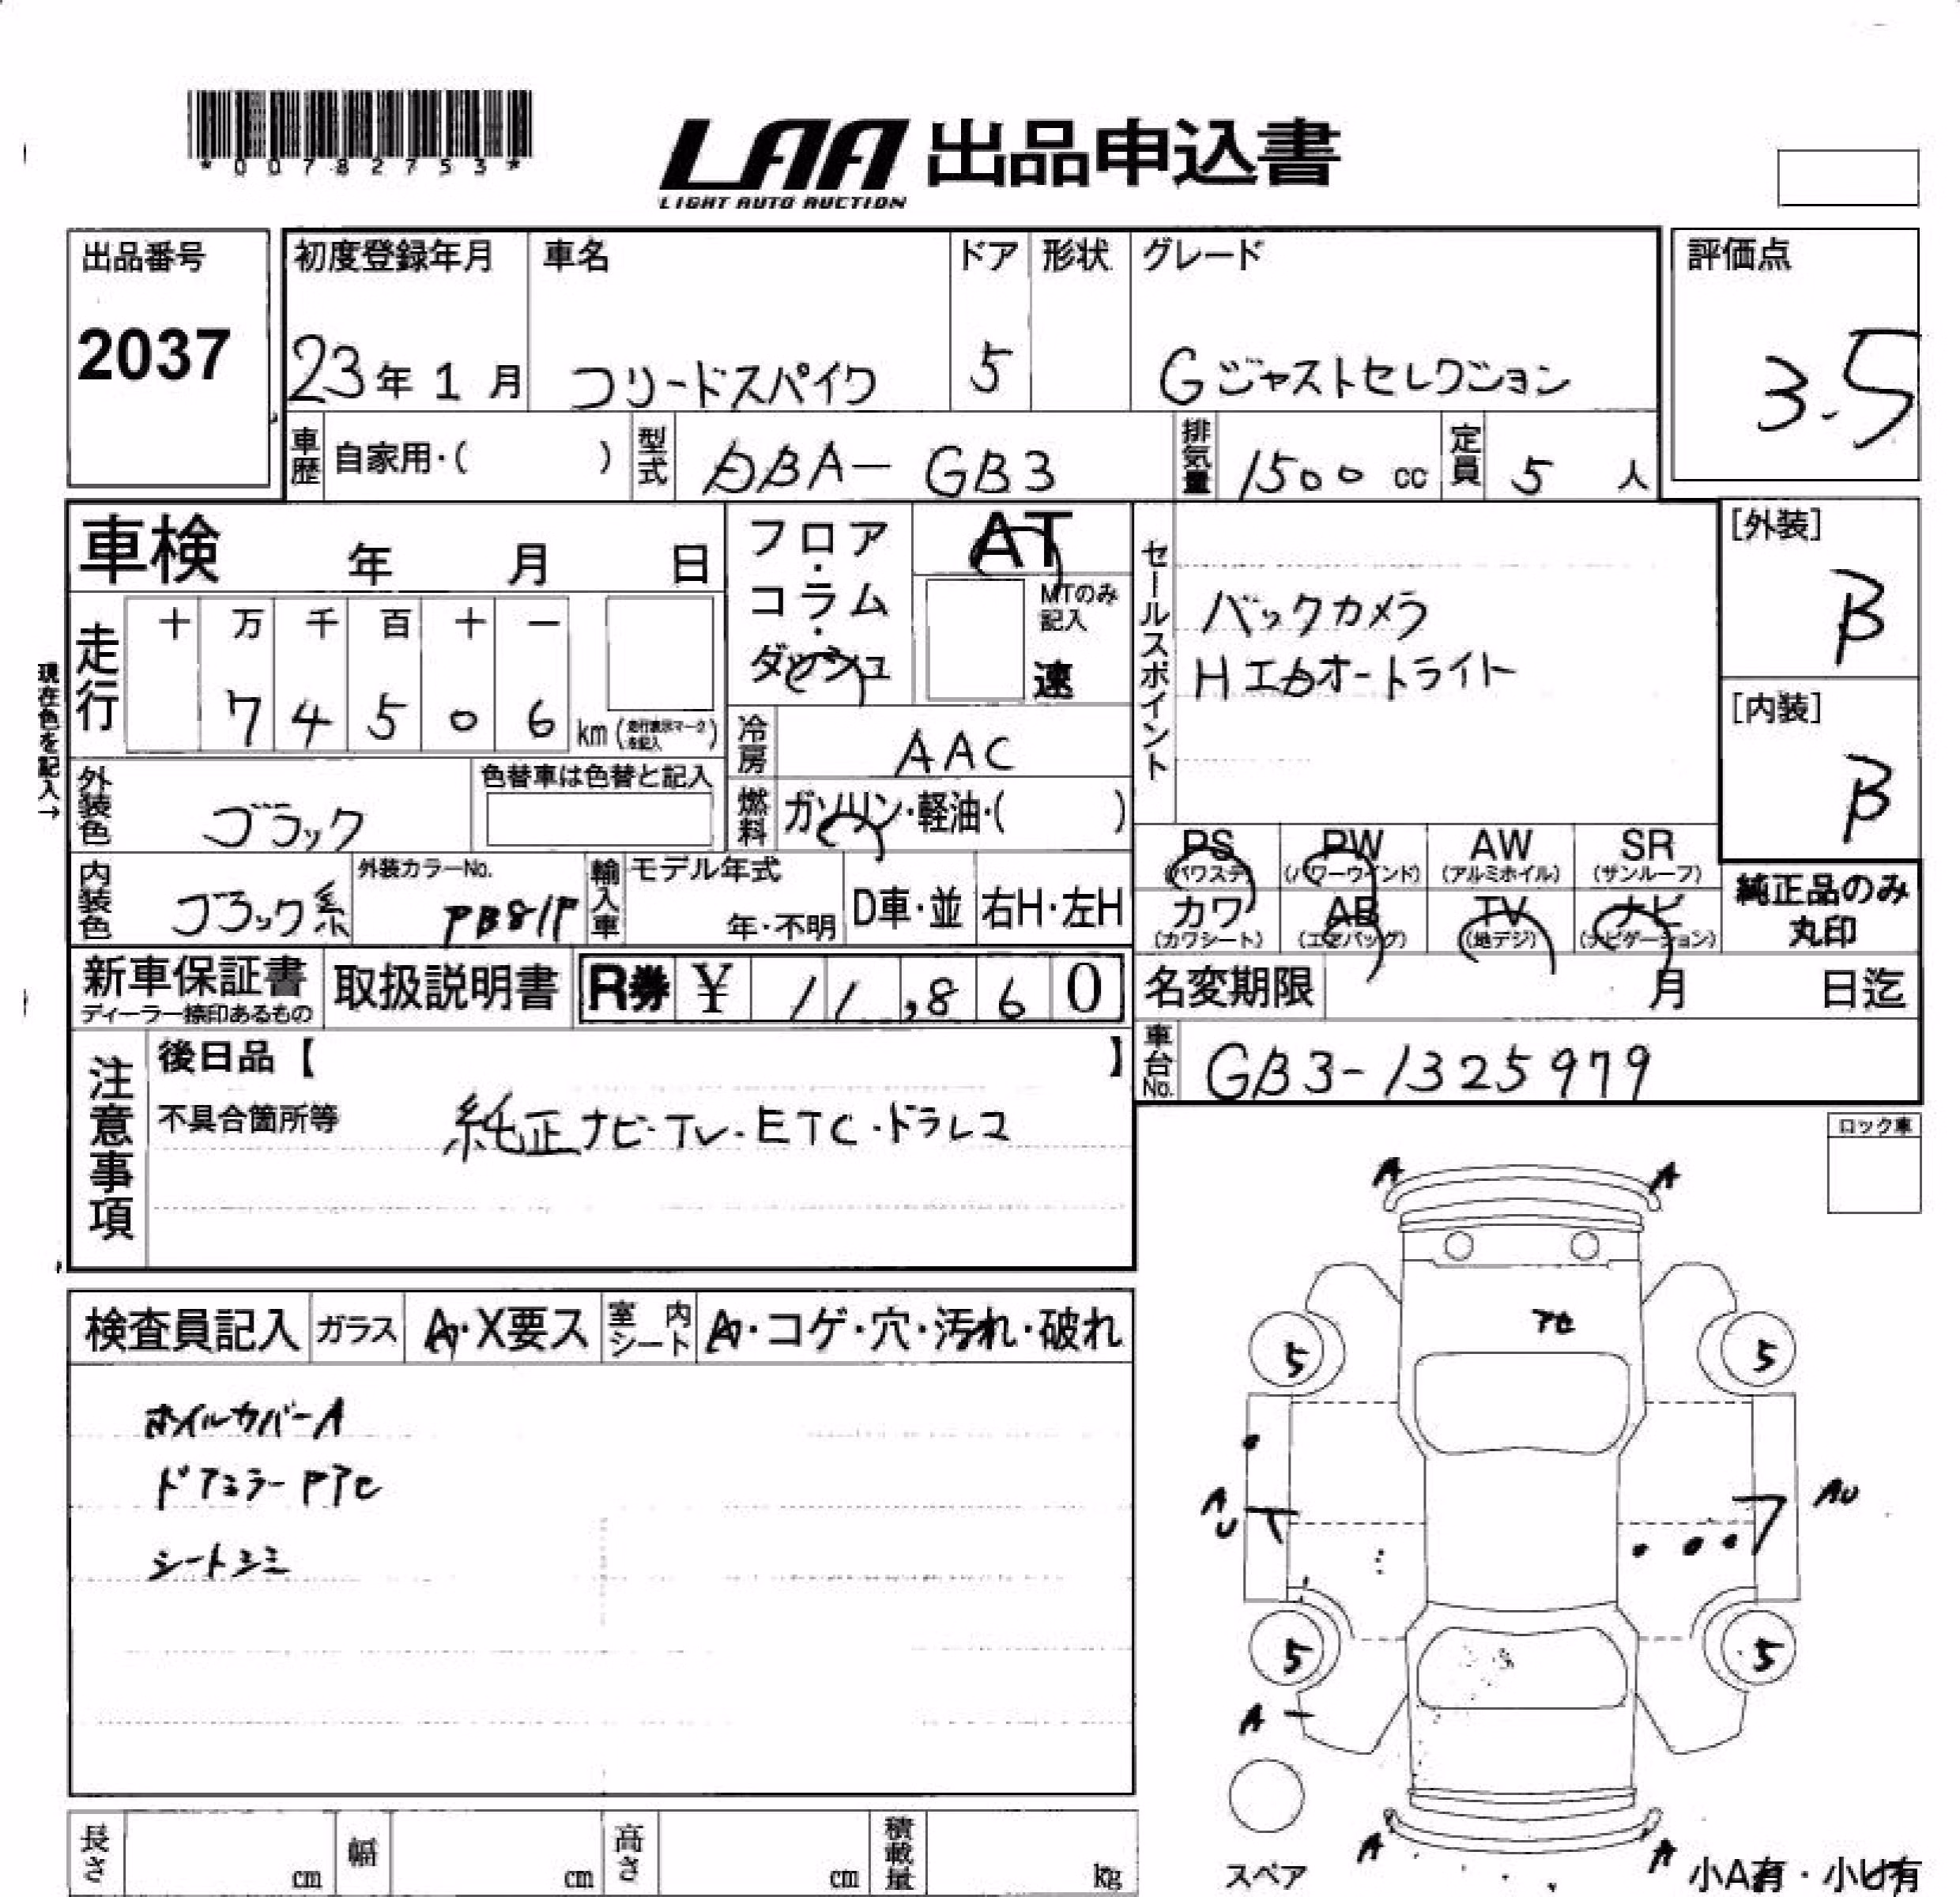 *00782753*
LAA 出品申込書
LIGHT AUTO AUCTION
出品番号
2037
初度登録年月
23年1月
車名
フリードスパイク
ドア
5
形状
グレード
Gジャストセレクション
評価点
3.5
車歴
自家用・( )
型式
DBA-GB3
排気量
1500 cc
定員
5 人
車検 年 月 日
フロア・コラム・ダッシュ
AT
MTのみ記入
速
セールスポイント
バックカメラ
HIDオートライト
[外装]
B
[内装]
B
現在色を記入→
走行
十 万 千 百 十 一
7 4 5 0 6 km (走行表示マークを記入)
冷房
AAC
外装色
ブラック
色替車は色替と記入
燃料
ガソリン・軽油・( )
PS (パワステ)
PW (パワーウインド)
AW (アルミホイル)
SR (サンルーフ)
カワ (カワシート)
AB (エアバッグ)
TV (地デジ)
ナビ (ナビゲーション)
純正品のみ
丸印
内装色
ブラック系
外装カラーNo.
PB81P
輸入車
モデル年式
年・不明
D車・並
右H・左H
新車保証書
ディーラー捺印あるもの
取扱説明書
R券 ¥ 11,860
名変期限 月 日迄
車台No.
GB3-1325979
注意事項
後日品【 】
不具合箇所等
純正ナビ・TV・ETC・ドラレコ
ロック車
検査員記入
ガラス
A・X要ス
室内シート
A・コゲ・穴・汚れ・破れ
ホイルカバーA
ドアミラーPアセ
シートシミ
A A
アセ
5 5
A
U
AU
5 5
A
A A
スペア
小A有・小U有
長さ cm
幅 cm
高さ cm
積載量 kg